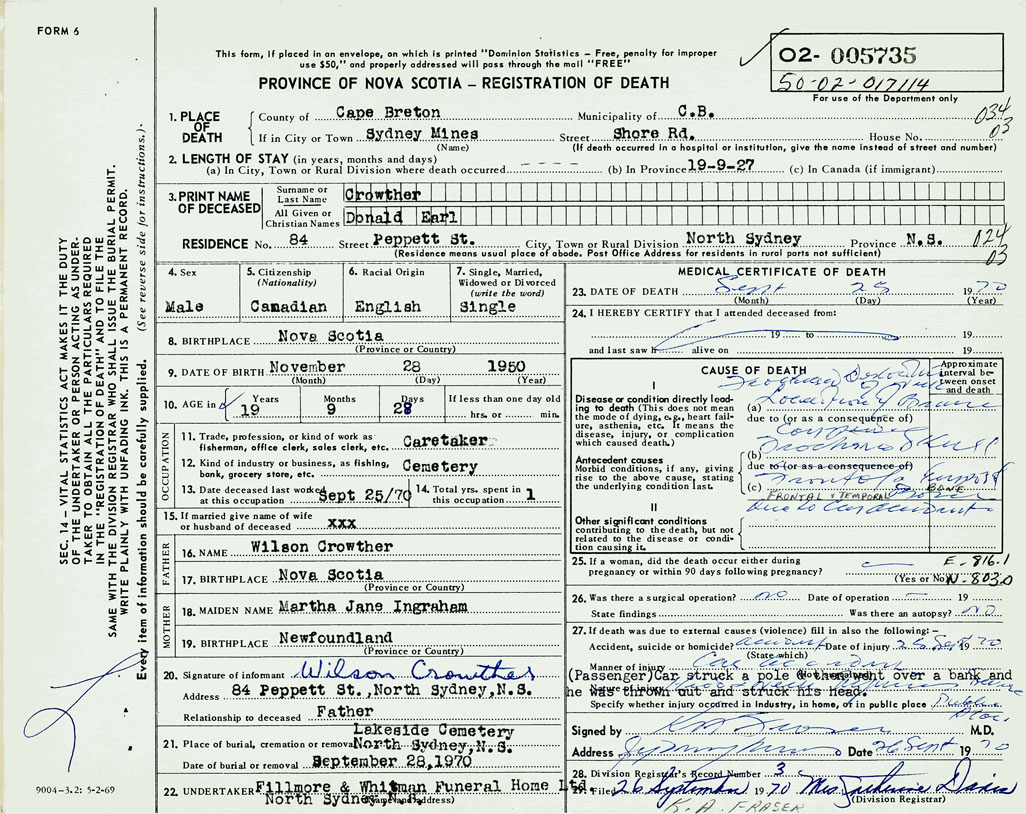 FORM 6
This form, if placed in an envelope, on which is printed "Dominion Statistics – Free, penalty for improper
use $50," and properly addressed will pass through the mail "FREE"
PROVINCE OF NOVA SCOTIA – REGISTRATION OF DEATH
O2- 005735
50-02-017114
For use of the Department only
1. PLACE OF DEATH
County of Cape Breton Municipality of C.B. 034
If in City or Town Sydney Mines Street Shore Rd. House No. 03
(Name) (If death occurred in a hospital or institution, give the name instead of street and number)
2. LENGTH OF STAY (in years, months and days)
(a) In City, Town or Rural Division where death occurred - - - - (b) In Province 19-9-27 (c) In Canada (if immigrant)
3. PRINT NAME OF DECEASED
Surname or Last Name Crowther
All Given or Christian Names Donald Earl
RESIDENCE No. 84 Street Peppett St. City, Town or Rural Division North Sydney Province N.S. 024
(Residence means usual place of abode. Post Office Address for residents in rural parts not sufficient) 03
4. Sex
Male
5. Citizenship (Nationality)
Canadian
6. Racial Origin
English
7. Single, Married, Widowed or Divorced (write the word)
Single
8. BIRTHPLACE Nova Scotia
(Province or Country)
9. DATE OF BIRTH November 28 1950
(Month) (Day) (Year)
10. AGE in Years Months Days If less than one day old
19 9 28 hrs. or min.
OCCUPATION
11. Trade, profession, or kind of work as fisherman, office clerk, sales clerk, etc. Caretaker
12. Kind of industry or business, as fishing, bank, grocery store, etc. Cemetery
13. Date deceased last worked at this occupation Sept 25/70
14. Total yrs. spent in this occupation 1
15. If married give name of wife or husband of deceased xxx
FATHER
16. NAME Wilson Crowther
17. BIRTHPLACE Nova Scotia
(Province or Country)
MOTHER
18. MAIDEN NAME Martha Jane Ingraham
19. BIRTHPLACE Newfoundland
(Province or Country)
20. Signature of informant Wilson Crowther
Address 84 Peppett St.,North Sydney,N.S.
Relationship to deceased Father
21. Place of burial, cremation or removal Lakeside Cemetery
North Sydney,N.S.
Date of burial or removal September 28,1970
22. UNDERTAKER Fillmore & Whitman Funeral Home Ltd.
North Sydney
(Name and address)
MEDICAL CERTIFICATE OF DEATH
23. DATE OF DEATH Sept 25 1970
(Month) (Day) (Year)
24. I HEREBY CERTIFY that I attended deceased from:
19 to 19
and last saw h alive on 19
CAUSE OF DEATH
Approximate interval between onset and death
I
Disease or condition directly leading to death (This does not mean the mode of dying, e.g., heart failure, asthenia, etc. It means the disease, injury, or complication which caused death.)
(a)
due to (or as a consequence of)
(b)
Antecedent causes
Morbid conditions, if any, giving rise to the above cause, stating the underlying condition last.
due to (or as a consequence of)
(c)
FRONTAL & TEMPORAL BONE
due to Car accident
II
Other significant conditions
contributing to the death, but not related to the disease or condition causing it.
25. If a woman, did the death occur either during pregnancy or within 90 days following pregnancy?
(Yes or No)
E-816.1
N-803.0
26. Was there a surgical operation? no Date of operation – 19
State findings Was there an autopsy? NO
27. If death was due to external causes (violence) fill in also the following:–
Accident, suicide or homicide? accident Date of injury 25 Sept 1970
(State which)
Manner of injury Car accident
(Passenger)Car struck a pole & then went over a bank and
he was thrown out and struck his head.
Specify whether injury occurred in industry, in home, or in public place Public Place
Signed by M.D.
Address Sydney Mines Date 26 Sept 1970
28. Division Registrar's Record Number 3
29. Filed 26 September 1970 Mrs. Catherine Davis
(Division Registrar)
K. A. FRASER
SEC. 14 – VITAL STATISTICS ACT MAKES IT THE DUTY
OF THE UNDERTAKER OR PERSON ACTING AS UNDER-
TAKER TO OBTAIN ALL THE PARTICULARS REQUIRED
IN THE "REGISTRATION OF DEATH" AND TO FILE THE
SAME WITH THE DIVISION REGISTRAR WHO SHALL ISSUE THE BURIAL PERMIT.
WRITE PLAINLY WITH UNFADING INK. THIS IS A PERMANENT RECORD.
Every item of information should be carefully supplied. (See reverse side for instructions.)
9004-3.2: 5-2-69